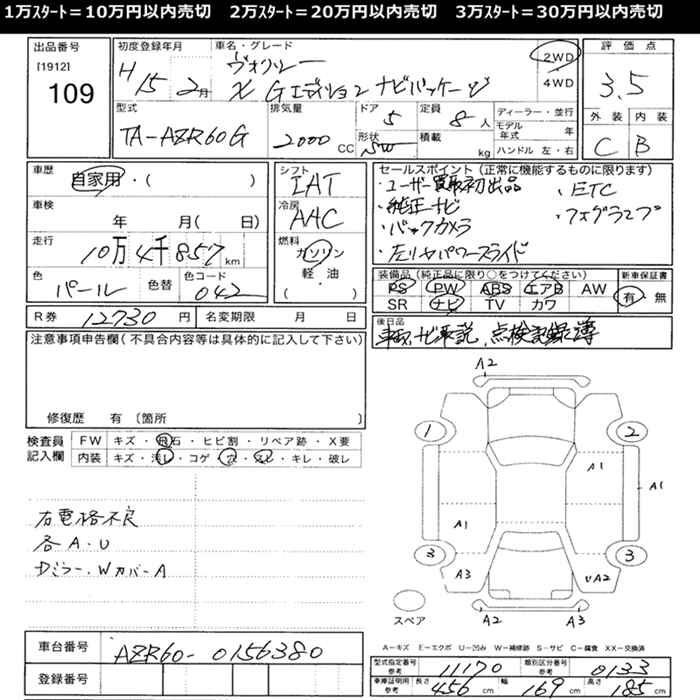 1万ｽﾀｰﾄ＝10万円以内売切　2万ｽﾀｰﾄ＝20万円以内売切　3万ｽﾀｰﾄ＝30万円以内売切
出品番号
[1912]
109
初度登録年月
H 15年 2月
車名・グレード
ヴォクシー
X Gエディション ナビパッケージ
2WD
4WD
評価点
3.5
外装 内装
C B
型式
TA-AZR60G
排気量
2000 CC
ドア
5
形状
SW
定員
8人
積載
kg
ディーラー・並行
モデル年式 年
ハンドル 左・右
車歴
自家用・( )
車検
年 月( 日)
走行
10万4千857 km
色
パール
色替
色コード
042
シフト
IAT
冷房
AAC
燃料
ガソリン
軽・油
( )
セールスポイント(正常に機能するものに限ります)
・ユーザー買取初出品
・ETC
・純正ナビ
・フォグランプ
・バックカメラ
・左リヤパワースライド
装備品(純正品に限り○をつけてください)
PS PW ABS エアB AW
SR ナビ TV カワ
新車保証書
有・無
R券 12730 円
名変期限 月 日
後日品
車取、ナビ取説、点検記録簿
注意事項申告欄(不具合内容等は具体的に記入して下さい)
修復歴 有 〔箇所 〕
検査員記入欄
FW キズ・飛石・ヒビ割・リペア跡・X要
内装 キズ・汚レ・コゲ・穴・スレ・キレ・破レ
右電格不良
各A・U
Dミラー・Wカバー A
A2
1
2
A1
A1
A1
3
3
A3
UA2
スペア
A2
A3
A－キズ E－エクボ U－凹み W－補修跡 S－サビ C－腐食 XX－交換済
車台番号 AZR60-0156380
登録番号
型式指定番号 参考 11170
類別区分番号 参考 0133
車庫証明用 参考 長さ 456 cm 幅 169 cm 高さ 185 cm